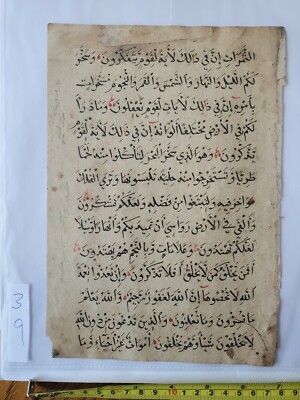 الثَّمَرَاتِ إِنَّ فِي ذَالِكَ لَآيَةً لِقَوْمٍ يَتَفَكَّرُونَ وَسَخَّرَ
لَكُمُ اللَّيْلَ وَالنَّهَارَ وَالشَّمْسَ وَالْقَمَرَ وَالنُّجُومُ مُسَخَّرَاتٌ
بِأَمْرِهِ إِنَّ فِي ذَالِكَ لَآيَاتٍ لِقَوْمٍ يَعْقِلُونَ وَمَا ذَرَأَ
لَكُمْ فِي الْأَرْضِ مُخْتَلِفًا أَلْوَانُهُ إِنَّ فِي ذَالِكَ لَآيَةً لِقَوْمٍ
يَذَّكَّرُونَ وَهُوَ الَّذِي سَخَّرَ الْبَحْرَ لِتَأْكُلُوا مِنْهُ لَحْمًا
طَرِيًّا وَتَسْتَخْرِجُوا مِنْهُ حِلْيَةً تَلْبَسُونَهَا وَتَرَى الْفُلْكَ
مَوَاخِرَ فِيهِ وَلِتَبْتَغُوا مِنْ فَضْلِهِ وَلَعَلَّكُمْ تَشْكُرُونَ
وَأَلْقَى فِي الْأَرْضِ رَوَاسِيَ أَنْ تَمِيدَ بِكُمْ وَأَنْهَارًا وَسُبُلًا
لَعَلَّكُمْ تَهْتَدُونَ وَعَلَامَاتٍ وَبِالنَّجْمِ هُمْ يَهْتَدُونَ
أَفَمَنْ يَخْلُقُ كَمَنْ لَا يَخْلُقُ أَفَلَا تَذَكَّرُونَ وَإِنْ تَعُدُّوا نِعْمَةَ
اللَّهِ لَا تُحْصُوهَا إِنَّ اللَّهَ لَغَفُورٌ رَحِيمٌ وَاللَّهُ يَعْلَمُ
مَا تُسِرُّونَ وَمَا تُعْلِنُونَ وَالَّذِينَ تَدْعُونَ مِنْ دُونِ اللَّهِ
لَا يَخْلُقُونَ شَيْئًا وَهُمْ يُخْلَقُونَ أَمْوَاتٌ غَيْرُ أَحْيَاءٍ وَمَا
39
10